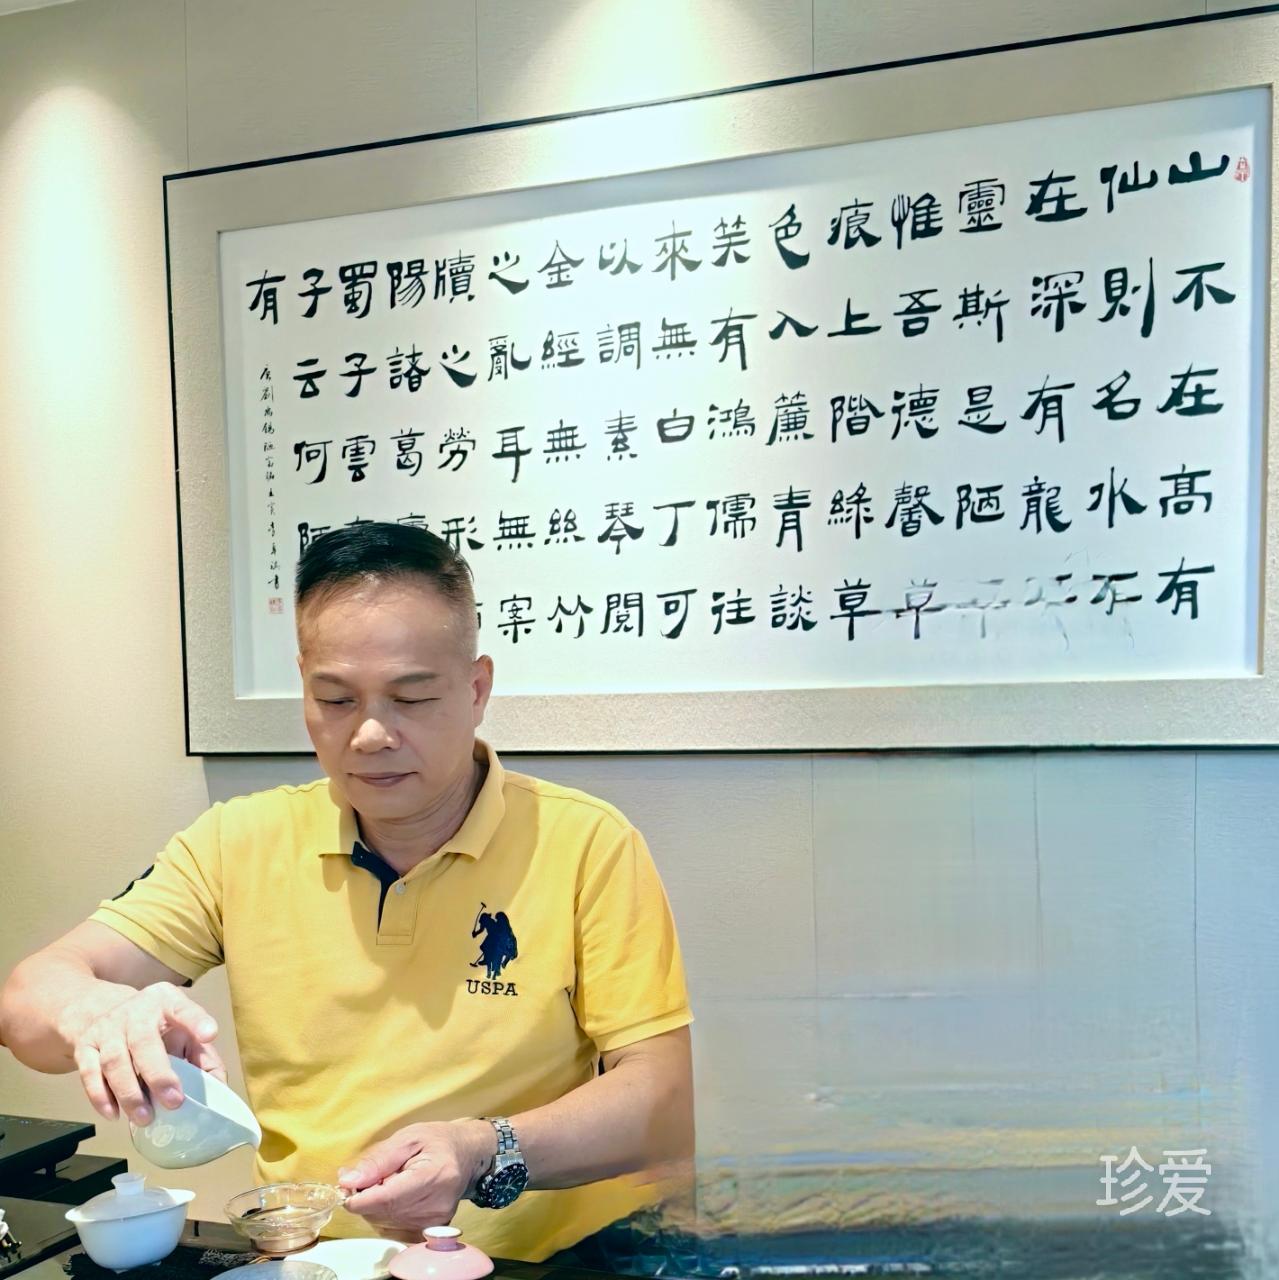 山不在高有
仙則名水不
在深有龍
靈斯是陋
惟吾德馨草
痕上階綠草
色入簾青談
笑有鴻儒往
來無白丁可
以調素琴閱
金經無絲竹
之亂耳無案
牘之勞形
陽諸葛
蜀子雲
子云何陋
有
唐劉禹錫陋室銘壬寅
USPA
珍爱